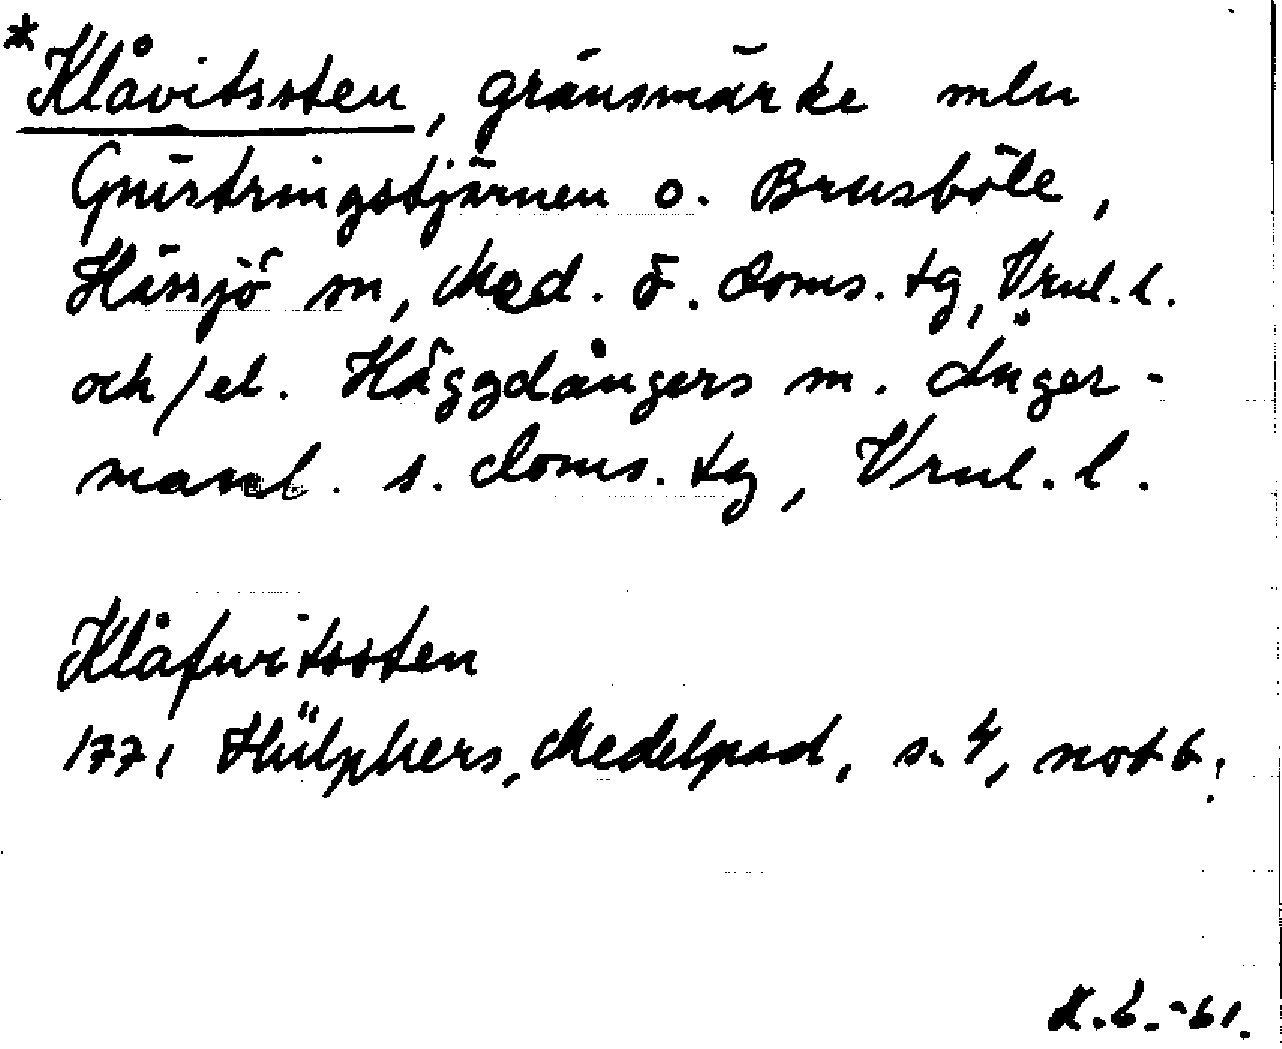 *Klåvitssten, gränsmärke mln
Gnistringstjärnen o. Brusböle,
Hässjö sn, Med. ö. doms. tg, Vrnl. l.
och/el. Häggdångers sn. Ånger-
manl. s. doms. tg, Vrnl. l.
Klåfwitssten
1771 Hülphers, Medelpad, s. 4, not b.
-61.